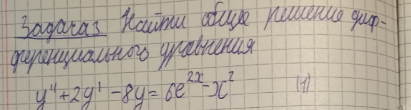 Задача 3. Найти общее решение диф-
ференциального уравнения
y'' + 2y' - 8y = 6e^{2x} - x^2 (1)